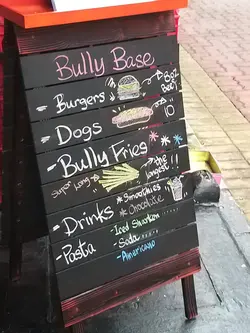 Bully Base
- Burgers - 8oz Beef!
- Dogs - 10"
- Bully Fries
Super Long the longest!!
- Drinks * Smoothies
* Chocolate
- Iced
- Pasta - Soda
- Americano